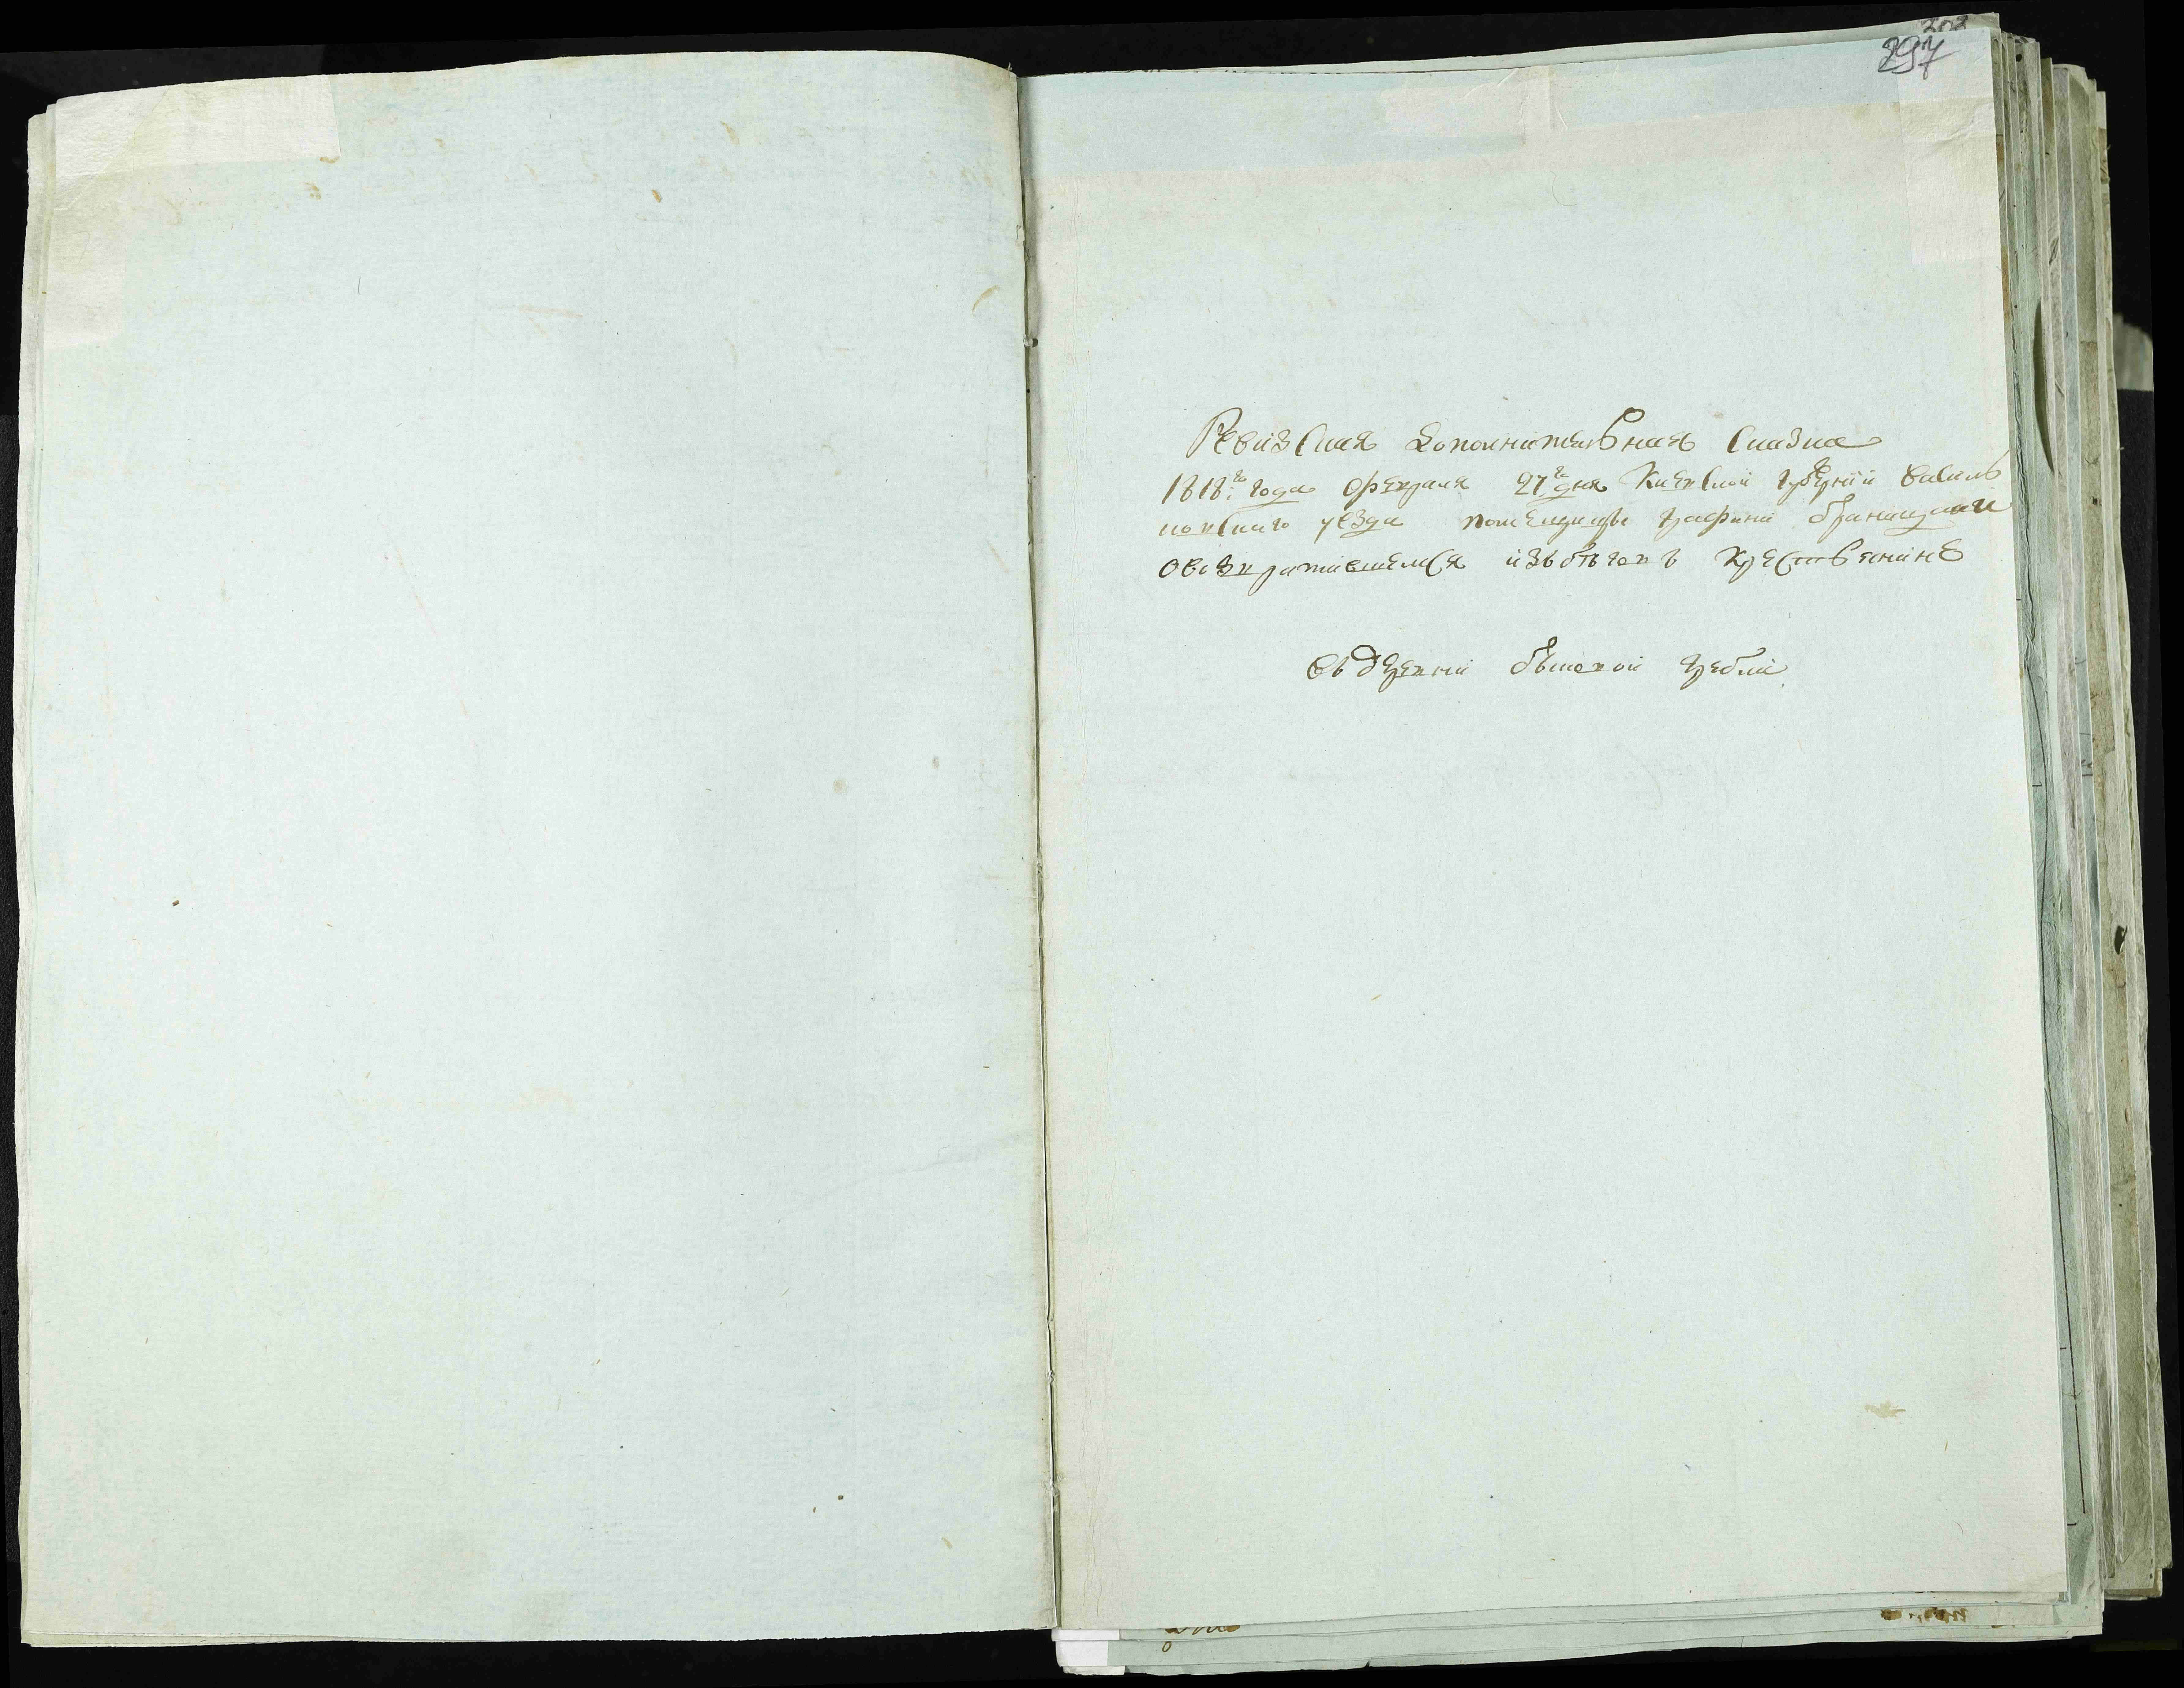 297
Ревизская дополнительная сказка
1818го года февраля 27го дня Киевской губернии василь
ковскаго уезда помещицы графини браницкои
овозвратившемся изъбѣговъ крестьянине
въ деревни быковой гребли